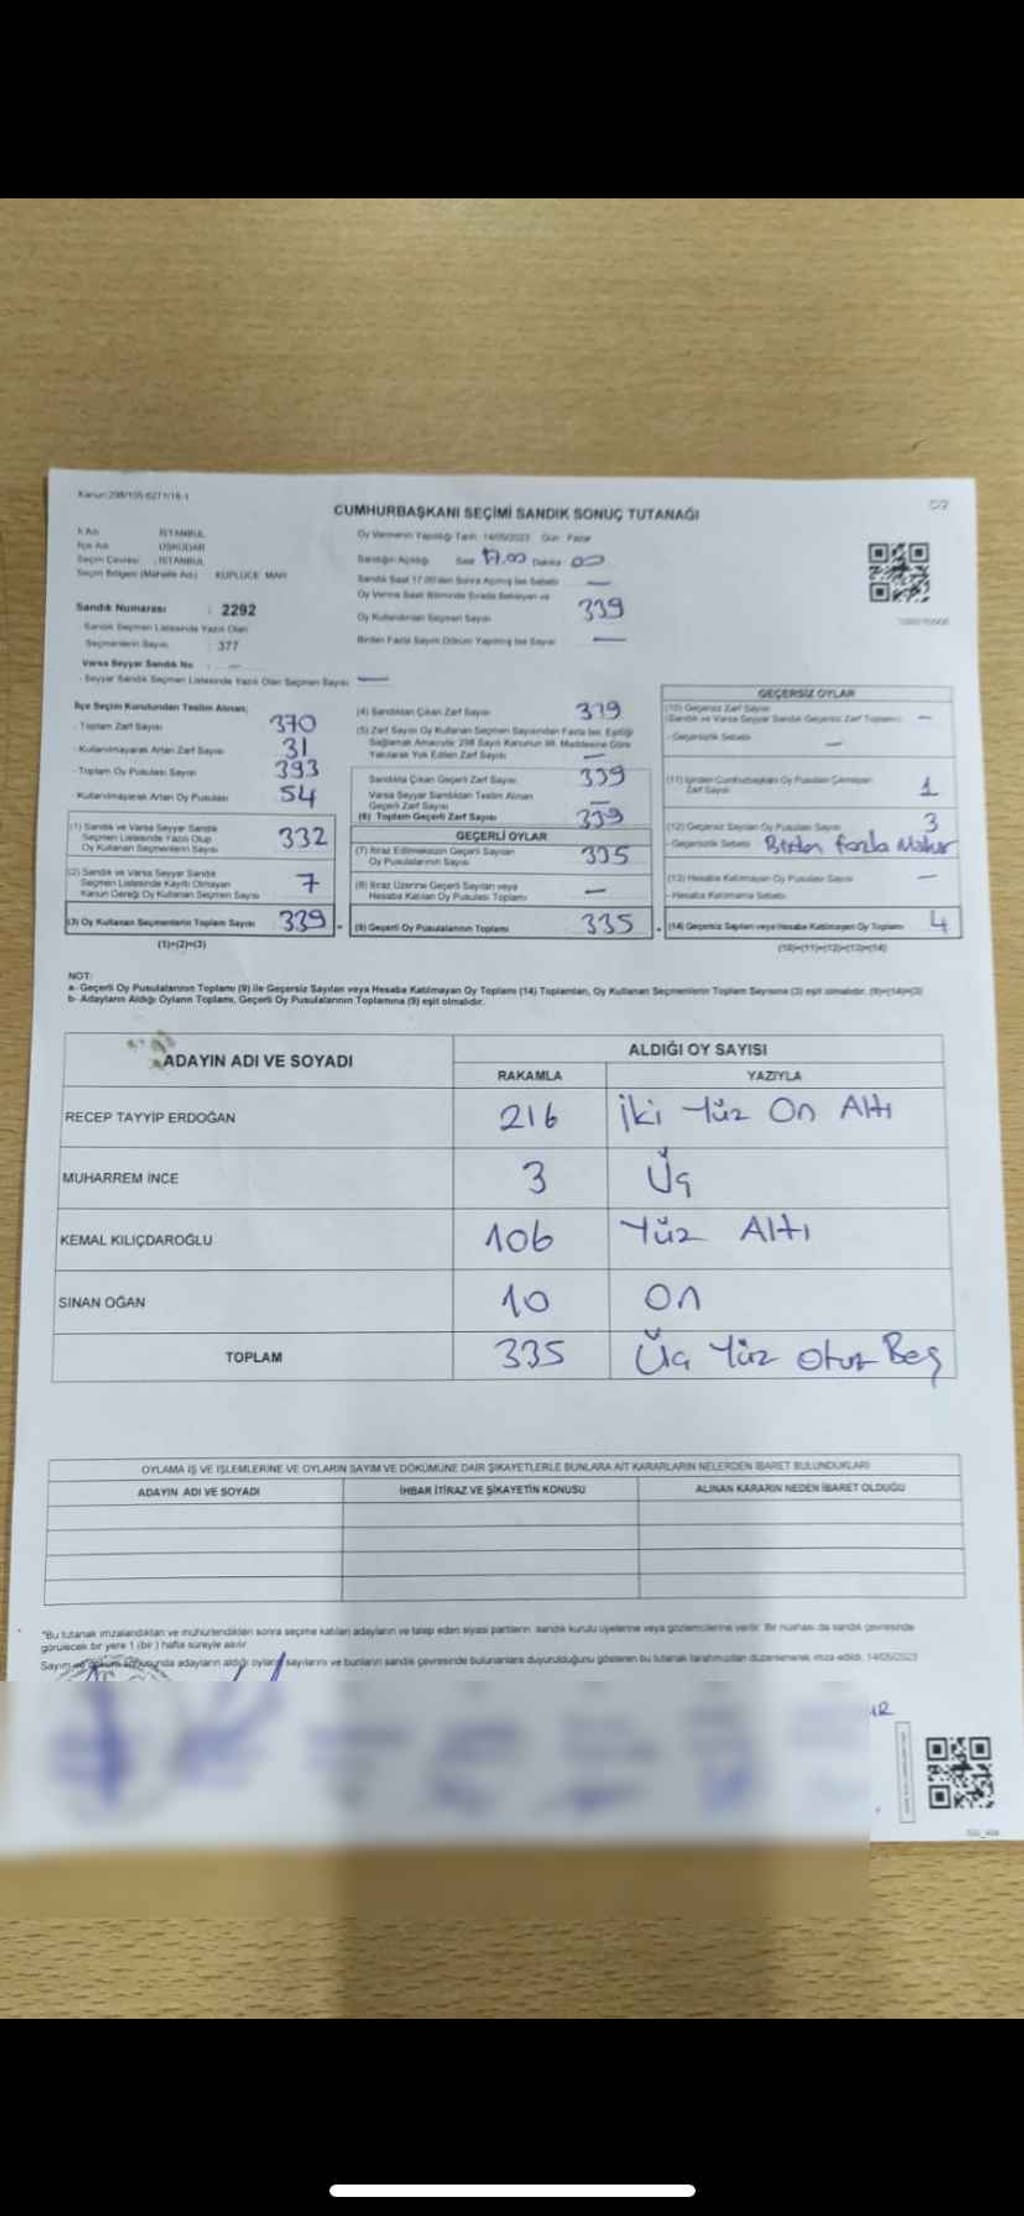 Kanun:298/105-6271/16-1
CUMHURBAŞKANI SEÇİMİ SANDIK SONUÇ TUTANAĞI
İl Adı : İSTANBUL
İlçe Adı : ÜSKÜDAR
Seçim Çevresi : İSTANBUL
Seçim Bölgesi (Mahalle Adı) : KÜPLÜCE MAH
Sandık Numarası : 2292
Sandık Seçmen Listesinde Yazılı Olan
Seçmenlerin Sayısı : 377
Varsa Seyyar Sandık No : —
Seyyar Sandık Seçmen Listesinde Yazılı Olan Seçmen Sayısı —
Oy Vermenin Yapıldığı Tarih: 14/05/2023 Gün: Pazar
Sandığın Açıldığı Saat 17.00 Dakika 00
Sandık Saat 17.00'den Sonra Açılmış İse Sebebi —
Oy Verme Saati Bitiminde Sırada Bekleyen ve
Oy Kullandırılan Seçmen Sayısı : 339
Birden Fazla Sayım Döküm Yapılmış İse Sayısı —
İlçe Seçim Kurulundan Teslim Alınan;
- Toplam Zarf Sayısı 370
- Kullanılmayarak Artan Zarf Sayısı 31
- Toplam Oy Pusulası Sayısı 393
- Kullanılmayarak Artan Oy Pusulası 54
(1) Sandık ve Varsa Seyyar Sandık
Seçmen Listesinde Yazılı Olup
Oy Kullanan Seçmenlerin Sayısı 332
(2) Sandık ve Varsa Seyyar Sandık
Seçmen Listesinde Kayıtlı Olmayan
Kanun Gereği Oy Kullanan Seçmen Sayısı 7
(3) Oy Kullanan Seçmenlerin Toplam Sayısı 339
(1)+(2)=(3)
(4) Sandıktan Çıkan Zarf Sayısı 339
(5) Zarf Sayısı Oy Kullanan Seçmen Sayısından Fazla İse, Eşitliği
Sağlamak Amacıyla 298 Sayılı Kanunun 98. Maddesine Göre
Yakılarak Yok Edilen Zarf Sayısı —
Sandıkta Çıkan Geçerli Zarf Sayısı 339
Varsa Seyyar Sandıktan Teslim Alınan
Geçerli Zarf Sayısı —
(6) Toplam Geçerli Zarf Sayısı 339
GEÇERLİ OYLAR
(7) İtiraz Edilmeksizin Geçerli Sayılan
Oy Pusulalarının Sayısı 335
(8) İtiraz Üzerine Geçerli Sayılan veya
Hesaba Katılan Oy Pusulası Toplamı —
(9) Geçerli Oy Pusulalarının Toplamı 335
GEÇERSİZ OYLAR
(10) Geçersiz Zarf Sayısı
(Sandık ve Varsa Seyyar Sandık Geçersiz Zarf Toplamı) —
- Geçersizlik Sebebi —
(11) İçinden Cumhurbaşkanı Oy Pusulası Çıkmayan
Zarf Sayısı 1
(12) Geçersiz Sayılan Oy Pusulası Sayısı 3
- Geçersizlik Sebebi Birden fazla Mühür
(13) Hesaba Katılmayan Oy Pusulası Sayısı —
- Hesaba Katılmama Sebebi
(14) Geçersiz Sayılan veya Hesaba Katılmayan Oy Toplamı 4
(10)+(11)+(12)+(13)=(14)
NOT:
a- Geçerli Oy Pusulalarının Toplamı (9) ile Geçersiz Sayılan veya Hesaba Katılmayan Oy Toplamı (14) Toplamları, Oy Kullanan Seçmenlerin Toplam Sayısına (3) eşit olmalıdır. (9)+(14)=(3)
b- Adayların Aldığı Oyların Toplamı, Geçerli Oy Pusulalarının Toplamına (9) eşit olmalıdır.
ADAYIN ADI VE SOYADI
ALDIĞI OY SAYISI
RAKAMLA YAZIYLA
RECEP TAYYİP ERDOĞAN 216 İki Yüz On Altı
MUHARREM İNCE 3 Üç
KEMAL KILIÇDAROĞLU 106 Yüz Altı
SİNAN OĞAN 10 On
TOPLAM 335 Üç Yüz Otuz Beş
OYLAMA İŞ VE İŞLEMLERİNE VE OYLARIN SAYIM VE DÖKÜMÜNE DAİR ŞİKAYETLERLE BUNLARA AİT KARARLARIN NELERDEN İBARET BULUNDUKLARI
ADAYIN ADI VE SOYADI İHBAR İTİRAZ VE ŞİKAYETİN KONUSU ALINAN KARARIN NEDEN İBARET OLDUĞU
"Bu tutanak imzalandıktan ve mühürlendikten sonra seçime katılan adayların ve talep eden siyasi partilerin sandık kurulu üyelerine veya gözlemcilerine verilir. Bir nüshası da sandık çevresinde
görülecek bir yere 1 (bir) hafta süreyle asılır.
Sayım ve döküm sonucunda adayların aldığı oyların sayılarını ve bunların sandık çevresinde bulunanlara duyurulduğunu gösteren bu tutanak tarafımızdan düzenlenerek imza edildi. 14/05/2023